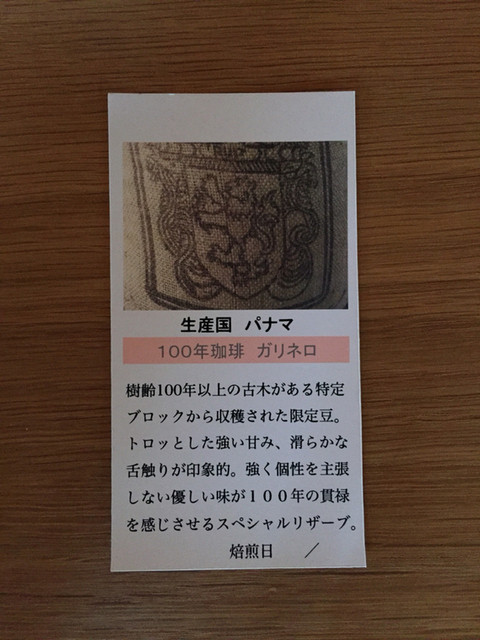 生産国 パナマ
100年珈琲 ガリネロ
樹齢100年以上の古木がある特定
ブロックから収穫された限定豆。
トロッとした強い甘み、滑らかな
舌触りが印象的。強く個性を主張
しない優しい味が100年の貫禄
を感じさせるスペシャルリザーブ。
焙煎日 /